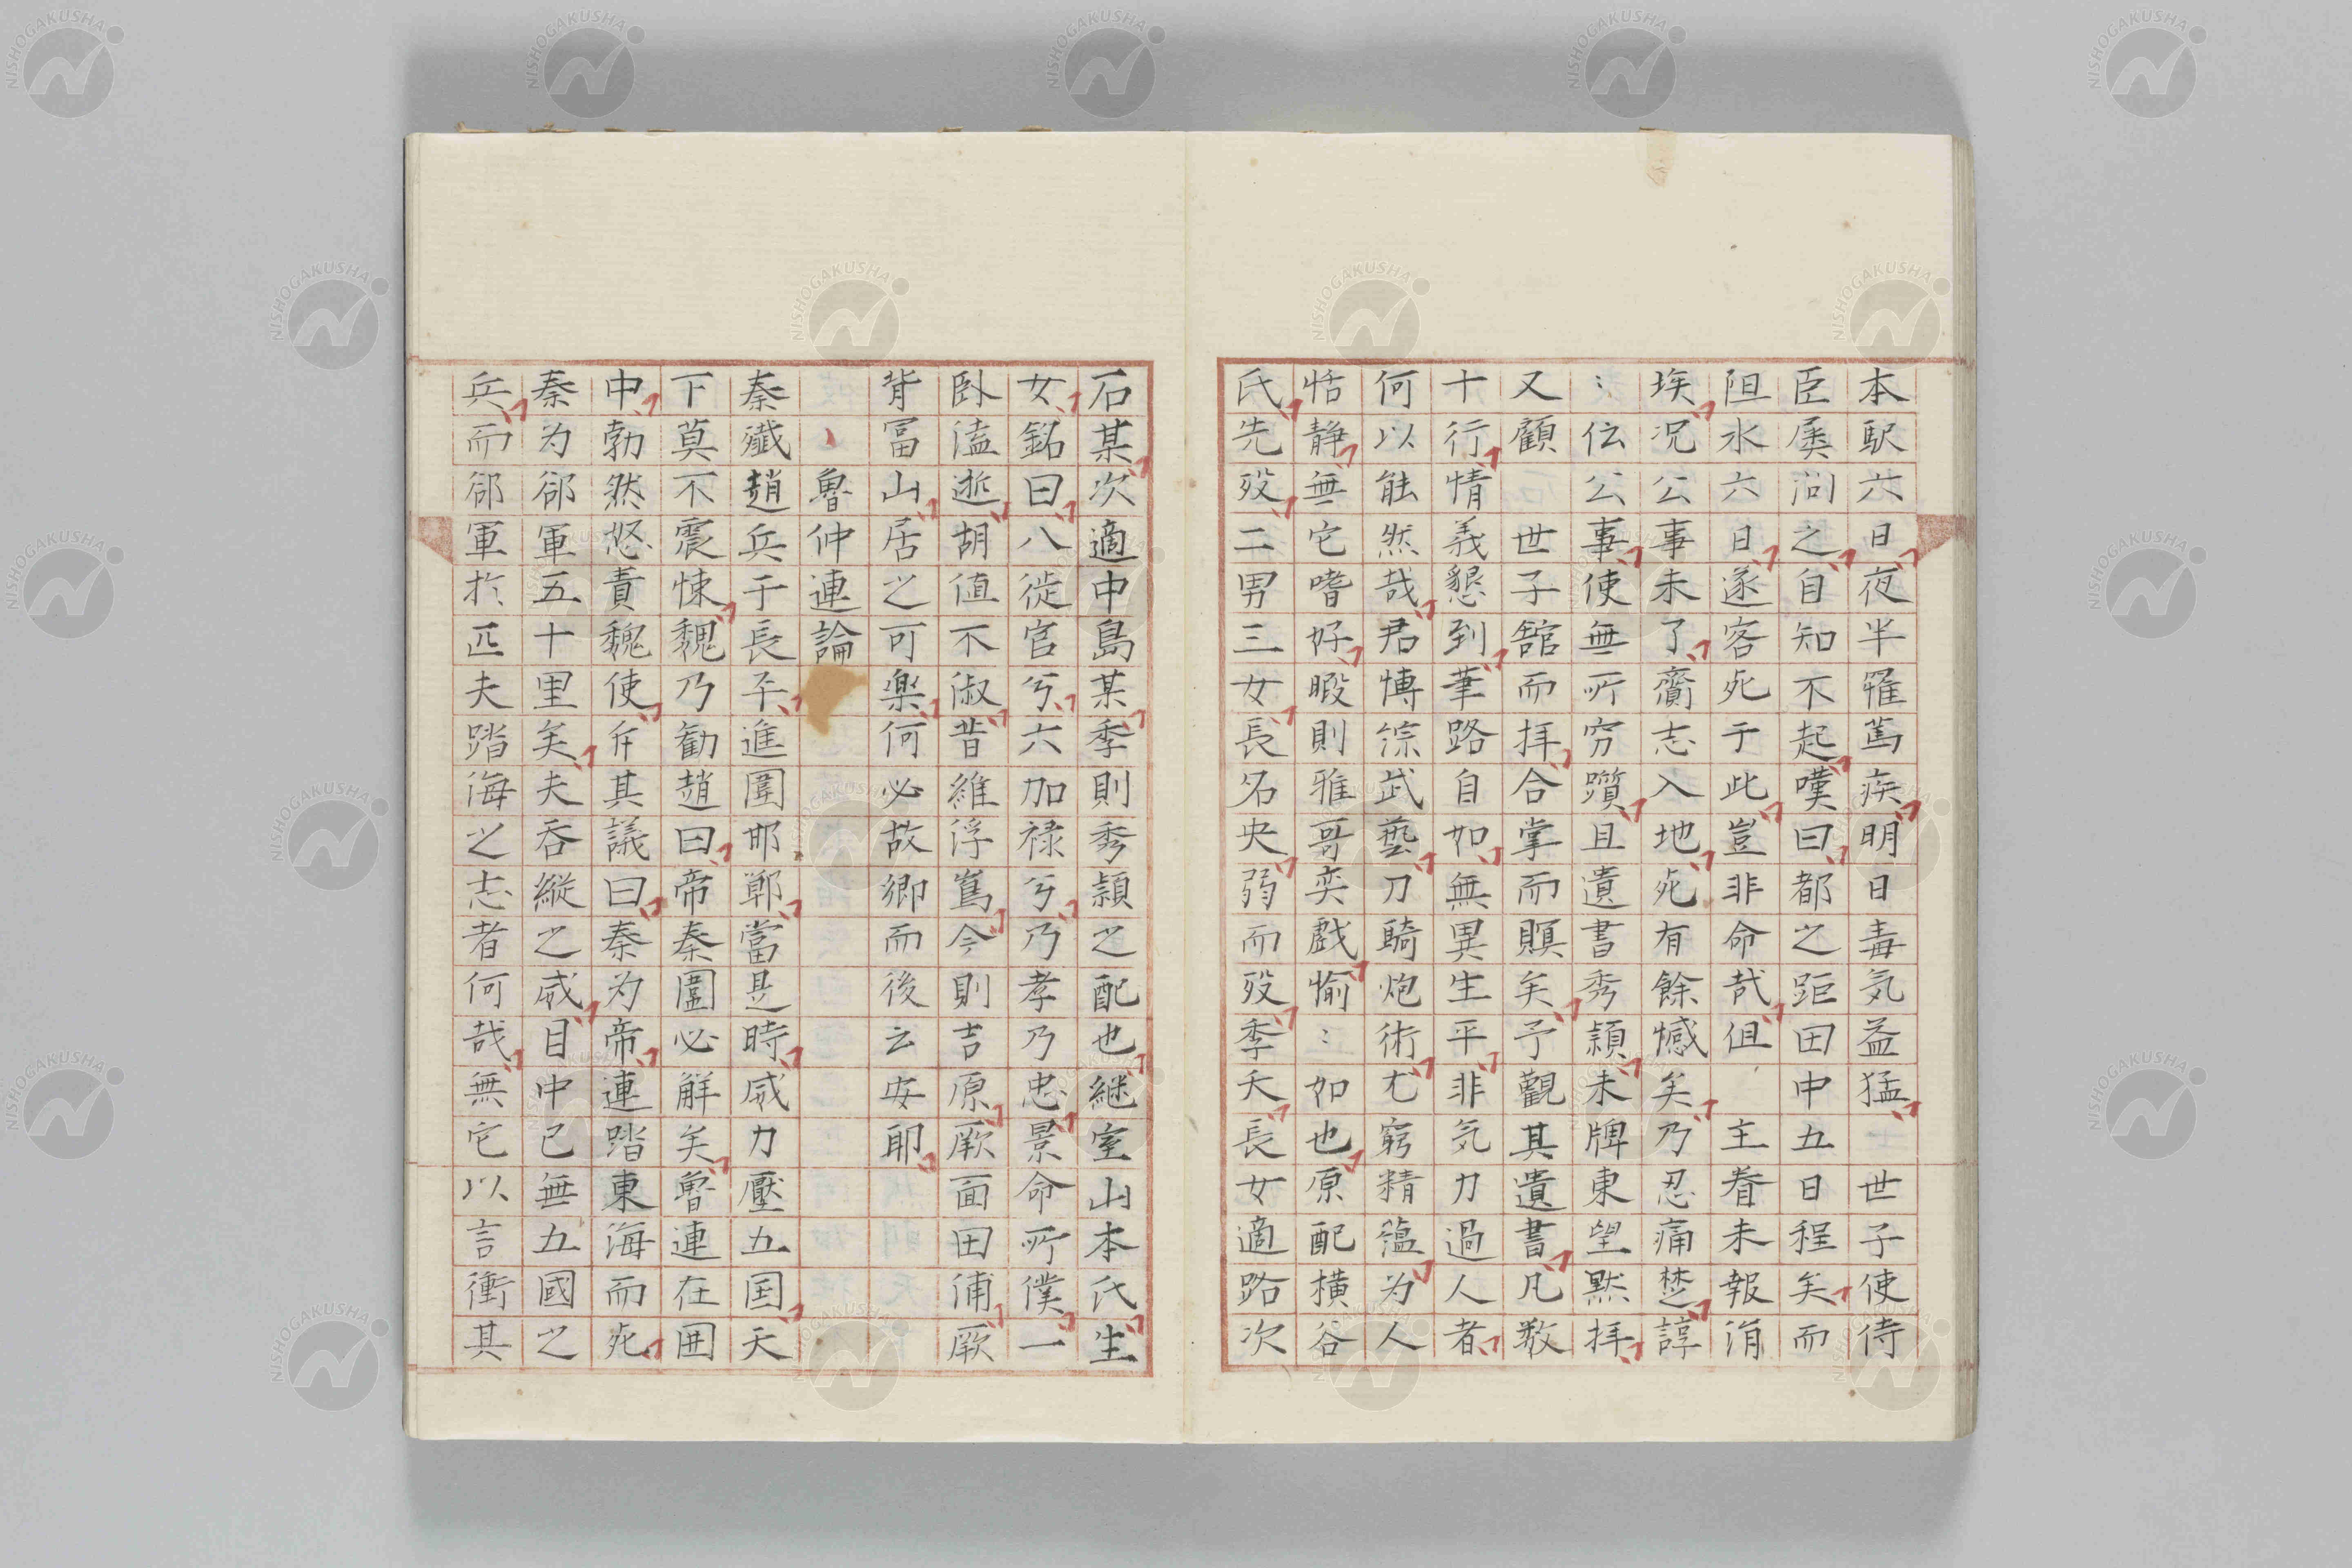 本駅六日夜半罹篤疾明日毒気益猛　世子使侍
臣屡問之自知不起嘆曰都之距田中五日程矣而
阻水六日遂客死于此豈非命哉但　主眷未報涓
埃况公事未了齎志入地死有餘憾矣乃忍痛楚諄
〻伝公事使無所穷躓且遺書秀頴未牌東望黙拝
又顧　世子舘而拝合掌而瞑矣予観其遺書凡数
十行情義懇到筆路自如無異生平非気力過人者
何以能然哉君博綜武藝刀騎炮術尤窮精蘊为人
恬静無它嗜好暇則雅哥奕戯愉〻如也原配横谷
氏先歿二男三女長名央弱而歿季夭長女適路次
石某次適中島某季則秀頴之配也継室山本氏生
女銘曰八徙官兮六加禄兮乃孝乃忠景命所僕一
臥溘逝胡値不淑昔維浮嶌今則吉原厥面田浦厥
背冨山居之可楽何必故卿而後云安耶
魯仲連論
秦殱趙兵于長平進圍邯鄲當是時威力壓五国天
下莫不震悚魏乃勧趙曰帝秦圍必解矣魯連在囲
中勃然怒責魏使斥其議曰秦为帝連踏東海而死
秦为郤軍五十里矣夫呑縦之威目中已無五國之
兵而郤軍於匹夫踏海之志者何哉無它以言衝其